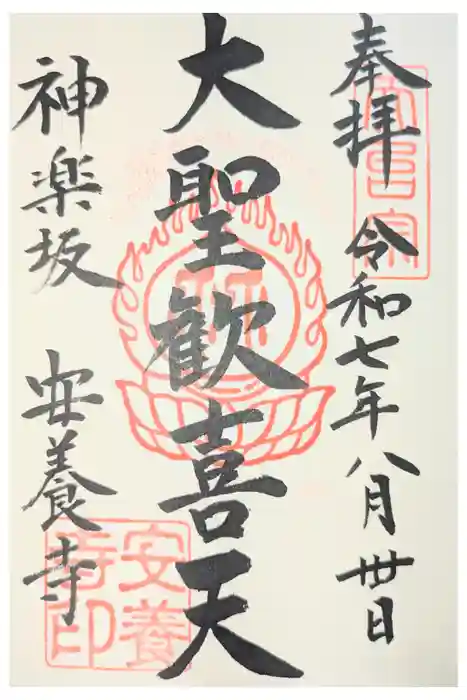 奉拝
令和七年八月卅日
大聖歓喜天
神楽坂
安養寺
真言宗
安養寺印